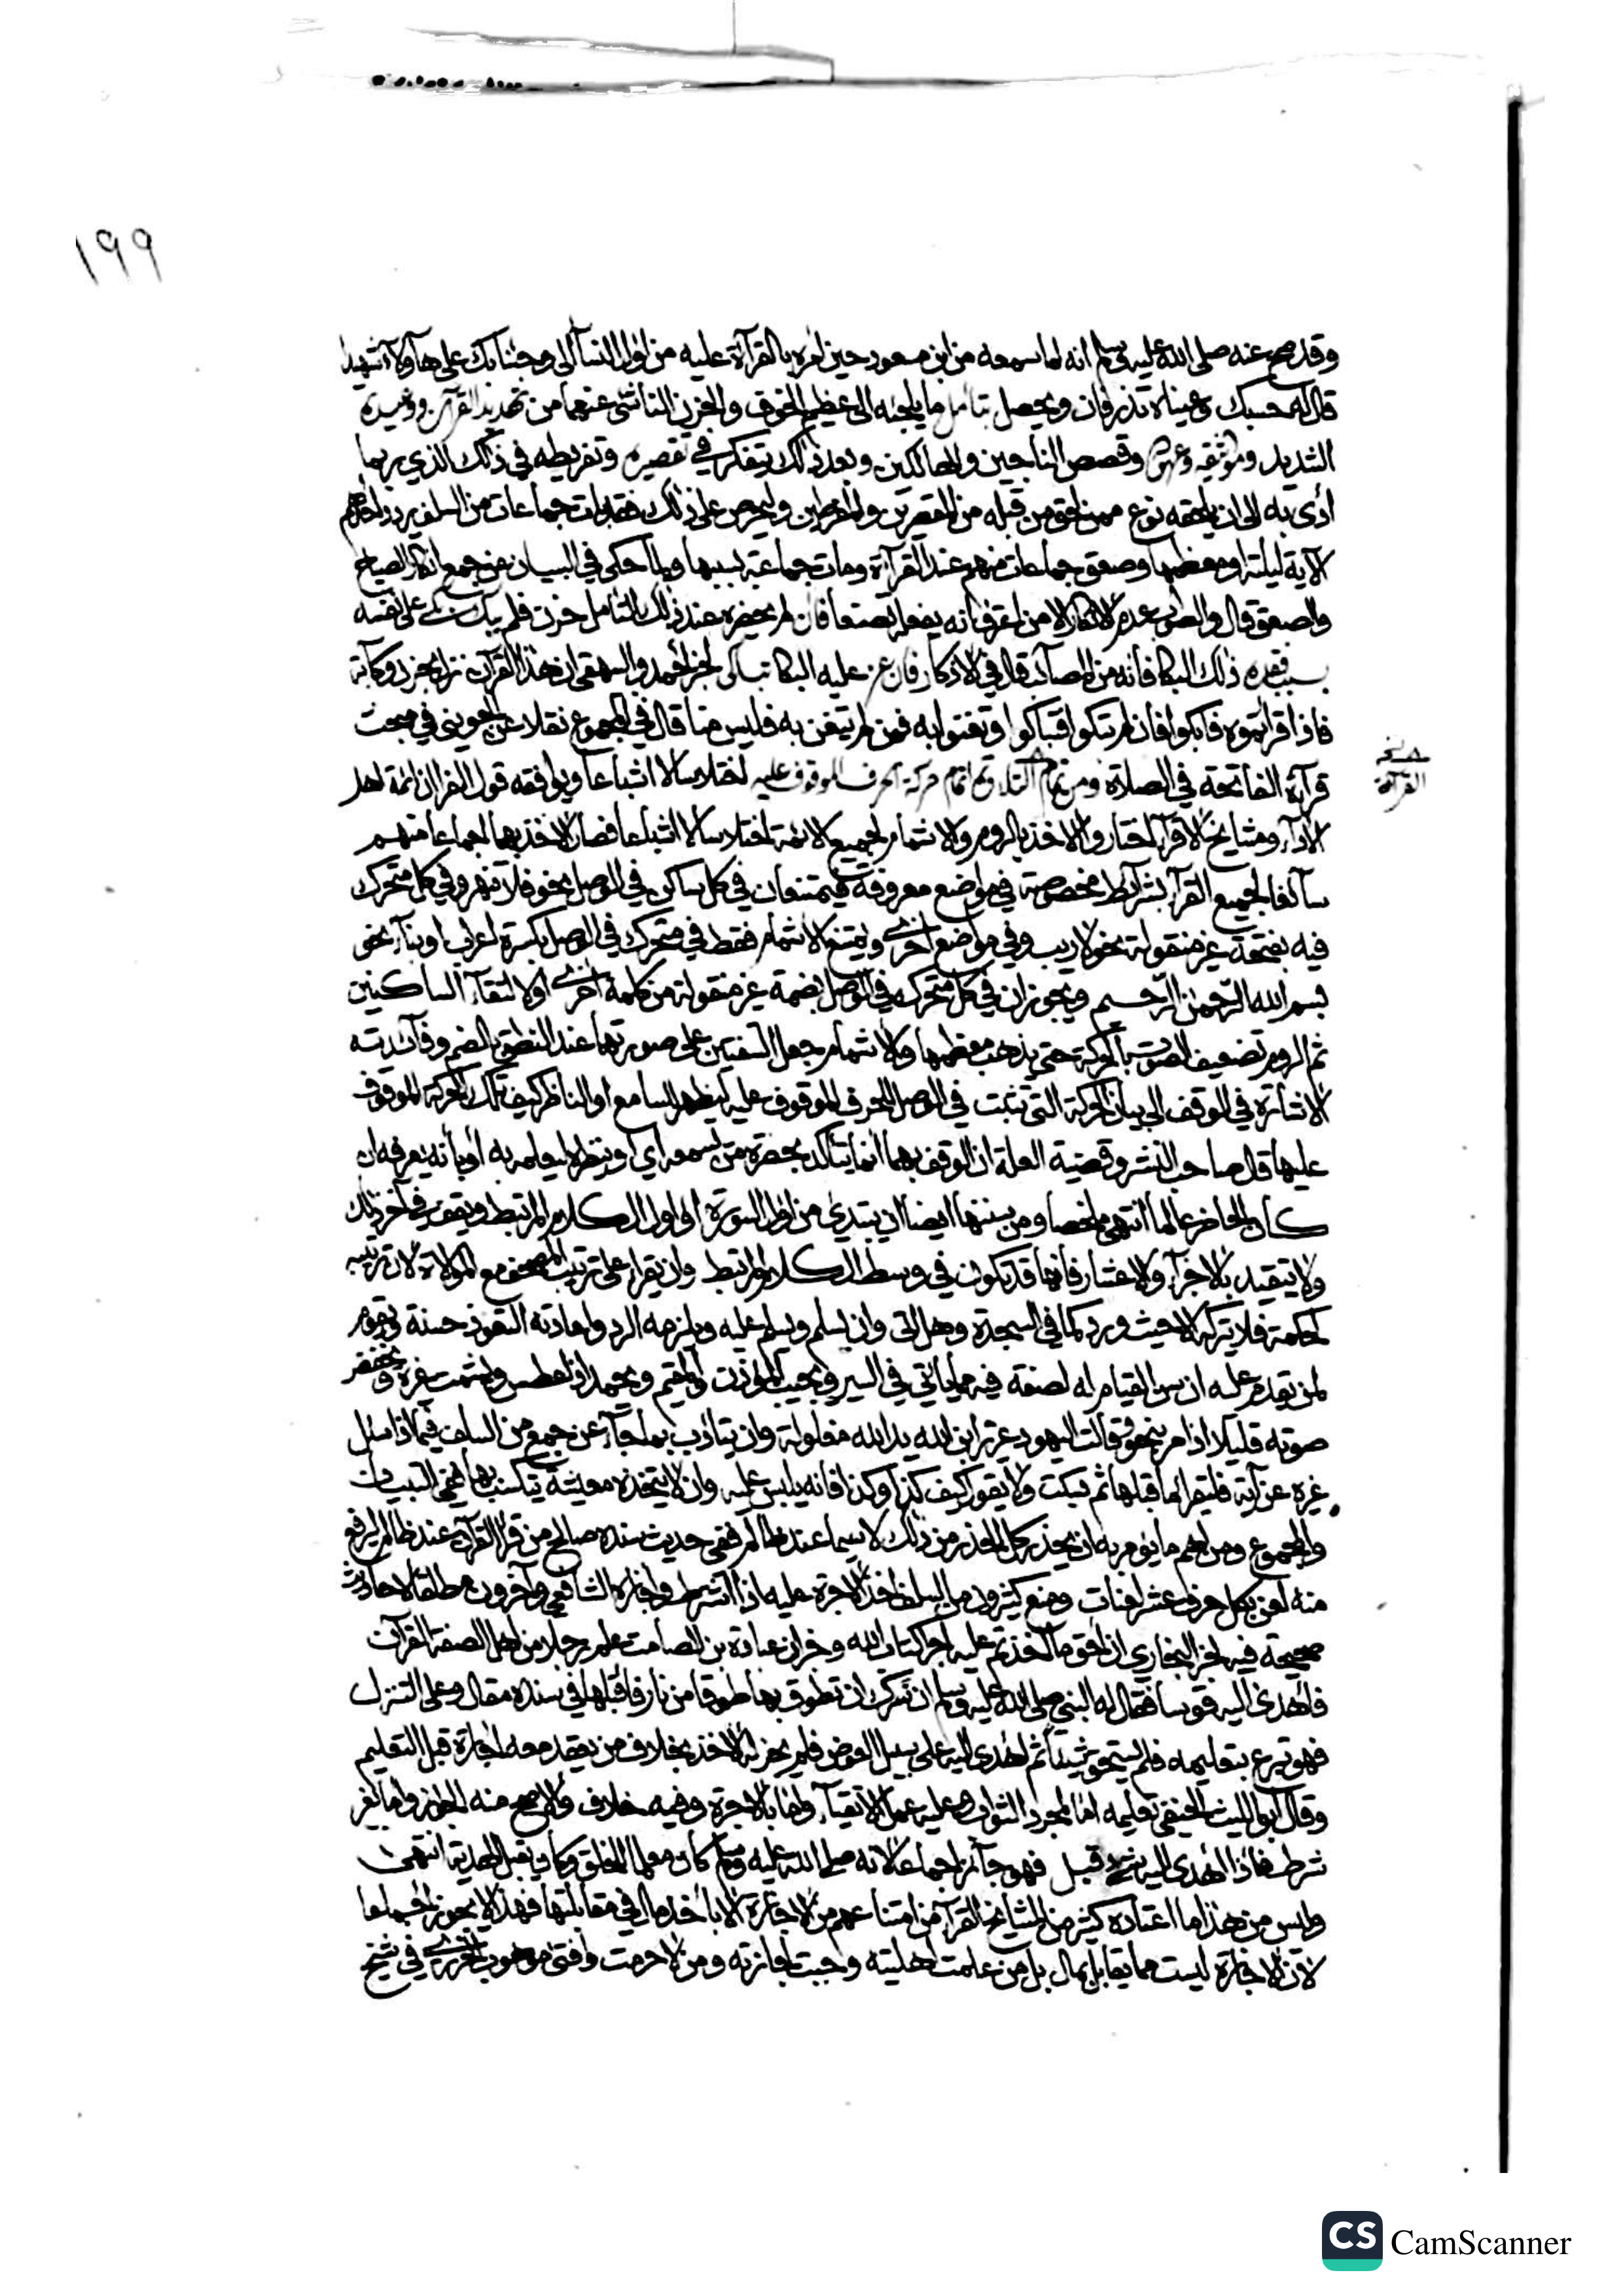 ١٩٩
وقد صح عنه صلى الله عليه وسلم انه لما سمعه من ابن مسعود حين امره بالقرآة عليه من اول النسآ الى وجئنا بك على هاؤلآء شهيدا
قال له حسبك وعيناه تذرفان ويحصل بتأمل ما يلجئه الى عظيم الخوف والحزن الناشئ عنهما من تهديد القرآن ووعيده
الشديد ومواثيقه وعهوده وقصص الناجين والهالكين وبعد ذلك يتفكر في تقصيره وتفريطه في ذلك الذي ربما
ادى به الى ان يلحقه نوع ممن لحق من قبله من المقصرين والمفرطين وليحرص على ذلك فقد بات جماعات من السلف يردد احدهم
الآية ليلته او معظمها وصعق جماعات منهم عند القرآة ومات جماعة بسببها ولما حكى في التبيان عن جمع انكار الصياح
والصعق قال والصواب عدم الانكار الا من اعترف انه يفعله تصنعا فان لم يحضره عند ذلك بالتأمل حزن فلم يبك بكى على نفسه
بسبب فقده ذلك البكا فانه من المصائب قال في الاذكار فان عز عليه البكا تباكى لخبر احمد والبيهقي ان هذا القرآن نزل بحزن وكآبة
فاذا قرأتموه فابكوا فان لم تبكوا فتباكوا وتغنوا به فمن لم يتغن به فليس منا قال في المجموع نقلا عن الجويني في مبحث
قرآة الفاتحة في الصلاة ومن تمام التلاوة اتمام حركة الحرف الموقوف عليه اختلاسا لا اشباعا ويوافقه قول الفزاز ائمة اهل
الادآء ومشايخ الاقرآ اختاروا الاخذ بالروم والاشمام لجميع الائمة اختلاسا لا اشباعا فصار الاخذ بهما اجماعا منهم
سآئغا لجميع القرآ بشرآئط مخصوصة في مواضع معروفة فيمتنعان في كل ساكن في الوصل نحو فلا تنهر وفي كل متحرك
فيه بفتحة غير منقولة نحو لا ريب وفي مواضع اخرى ويمتنع الاشمام فقط في متحرك في الوصل بكسرة اعراب او بنآء نحو
بسم الله الرحمن الرحيم ويجوزان في كل متحرك في الوصل بضمة غير منقولة من كلمة اخرى او لالتقآء الساكنين
ثم الروم تضعيف الصوت بالحركة حتى يذهب معظمها والاشمام جعل الشفتين على صورتهما عند النطق بالضم وفآئدته
الاشارة في الوقف الى بيان الحركة التي تثبت في الوصل للحرف الموقوف عليه ليظهر للسامع او الناظر كيف تلك الحركة الموقوف
عليها قال صاحب النشر وقضية العلة ان الوقف بهما انما يتأكد بحضرة من يسمعه اي او ينظره ليعلم به او بانه يعرفه ان
كان الحاضر عالما انتهى ملخصا ومن سننها ايضا ان يبتدئ من اول السورة او اول الكلام المرتبط ويقف في آخر ذلك
ولا يتقيد بالاجزآء والاعشار فانها قد تكون في وسط الكلام المرتبط وان يقرا على ترتيب المصحف مع الموالاة لان ترتيبه
لحكمة فلا يتركه الا حيث ورد كما في السجدة وهل اتى وان يسلم ويسلم عليه ويلزمه الرد واعادته التعوذ حسنة ويقوم
لمن يقدم عليه ان سن القيام له لصفة فيه مما يأتي في السير ويجيب المؤذن والمقيم ويحمد اذا عطس ويشمت غيره ويخفض
صوته قليلا اذا مر بنحو وقالت اليهود عزير ابن الله يد الله مغلولة وان يتأدب بما جآء عن جمع من السلف فيما اذا سئل
غيره عن آية فليقرا ما قبلها ثم يسكت ولا يقول كيف كذا وكذا فانه يلبس عليه وان لا يتخذه معيشة يتكسب بها ففي التبيان
والمجموع ومن اهم ما يؤمر به ان يحذر كل الحذر من ذلك لا سيما عند ظالم ففي حديث سنده صالح من قرا القرآن عند ظالم ليرفع
منه لعن بكل حرف عشر لعنات ومنع كثيرون من السلف اخذ الاجرة عليه اذا اشترط واجازه الشافعي وآخرون مطلقا لاحاديث
صحيحة فيه لخبر البخاري ان احق ما اخذتم عليه اجرا كتاب الله وخبر ان عبادة بن الصامت علم رجلا من اهل الصفة القرآن
فاهدى اليه قوسا فقال له النبي صلى الله عليه وسلم ان سرك ان تطوق بها طوقا من نار فاقبلها في سنده مقال وعلى التنزل
فهو تبرع بتعليمه فلم يستحق شيئا ثم اهدى اليه على سبيل العوض فلم يجز له الاخذ بخلاف من يعقد معه اجارة قبل التعليم
وقال ابو الليث الحنفي تعليمه اما لمجرد الثواب وعليه عمل الاتقيآء واما بالاجرة وفيه خلاف والاصح منه الجواز واما بغير
شرط فاذا اهدى اليه شيء قبل فهو جآئز اجماعا لانه صلى الله عليه وسلم كان معلما للخلق وكان يقبل الهدية انتهى
وليس من هذا ما اعتاده كثير من مشايخ القرآء من امتناعهم من الاجازة الا باخذ مال في مقابلتها فهذا لا يجوز اجماعا
لان الاجازة ليست مما يقابل بمال بل من علمت اهليته وجبت اجازته ومن لا حرمت وافتى موهوب الجزري في شيخ
نخ
القرآة
CS CamScanner